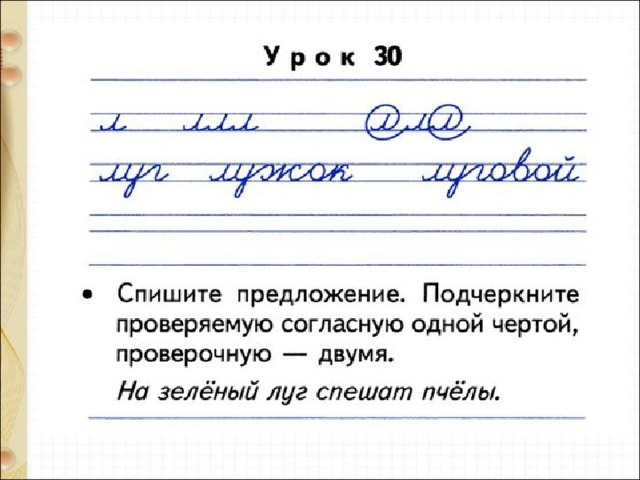 Урок 30
л ллл ллл
луг лужок луговой
• Спишите предложение. Подчеркните
проверяемую согласную одной чертой,
проверочную — двумя.
На зелёный луг спешат пчёлы.